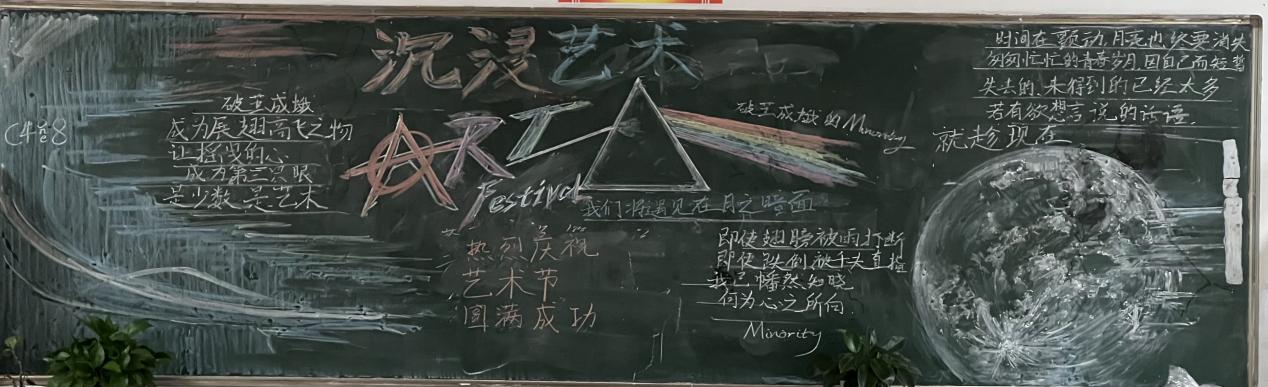 沉浸艺术
ART
Festival
破茧成蛾
成为展翅高飞之物
让摇曳的心
成为第三只眼
是少数,是艺术
破茧成蛾的Minority
我们将遇见在月之暗面
热烈庆祝
艺术节
圆满成功
即使翅膀被雨打断
即使跌倒被千夫直指
我已幡然知晓
何为心之所向
Minority
时间在颤动,月亮也终要消失
匆匆忙忙的青春岁月,因自己而短暂
失去的,未得到的已经太多
若有欲想言说的话语,
就趁现在